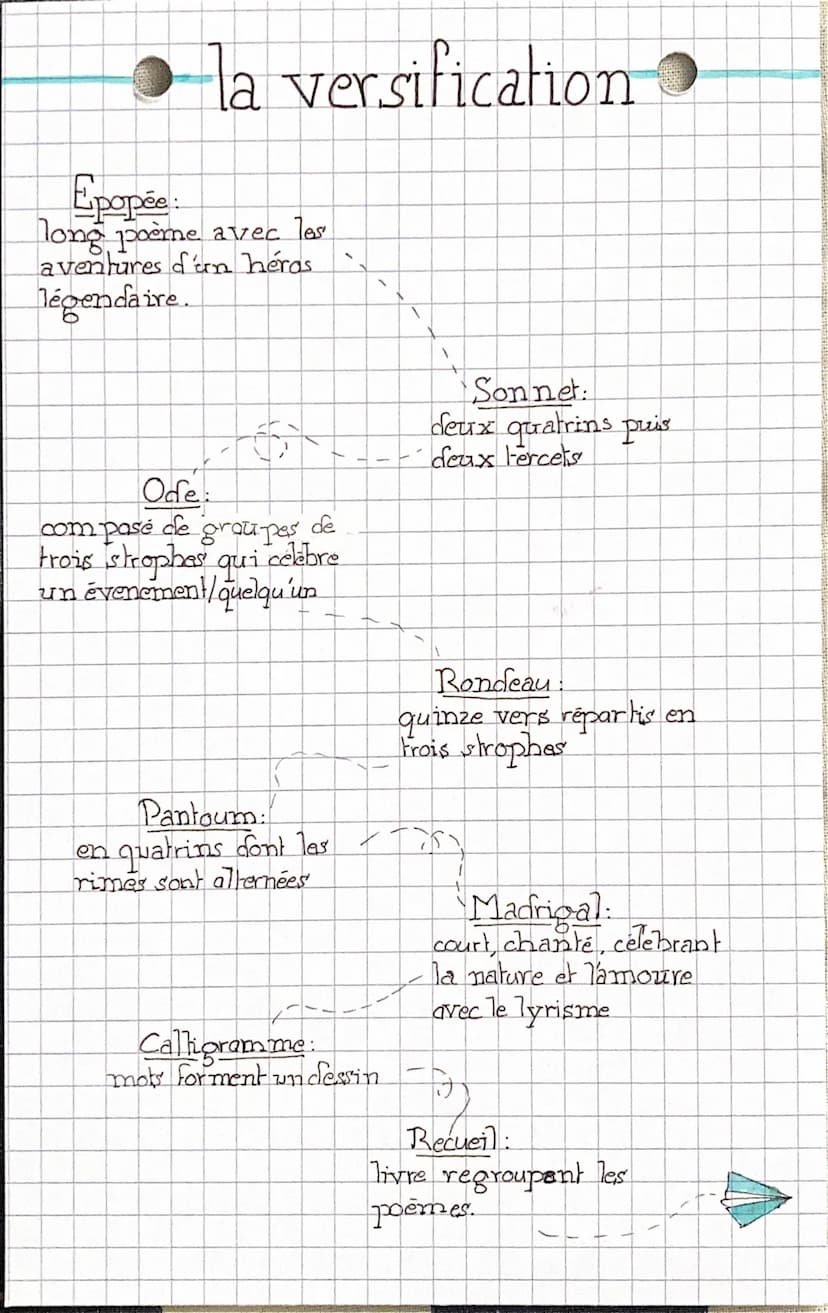 la versification
Épopée:
long poème avec les
aventures d'un héros
légendaire.
Sonnet:
deux quatrins puis
deux tercets
Ode:
composé de groupes de
trois strophes qui célèbre
un évenement/quelqu'un
Rondeau:
quinze vers répartis en
trois strophes
Pantoum:
en quatrins dont les
rimes sont alternées
Madrigal:
court, chanté, célébrant
la nature et l'amoure
avec le lyrisme
Calligramme:
mots forment un dessin
Recueil:
livre regroupant les
poèmes.